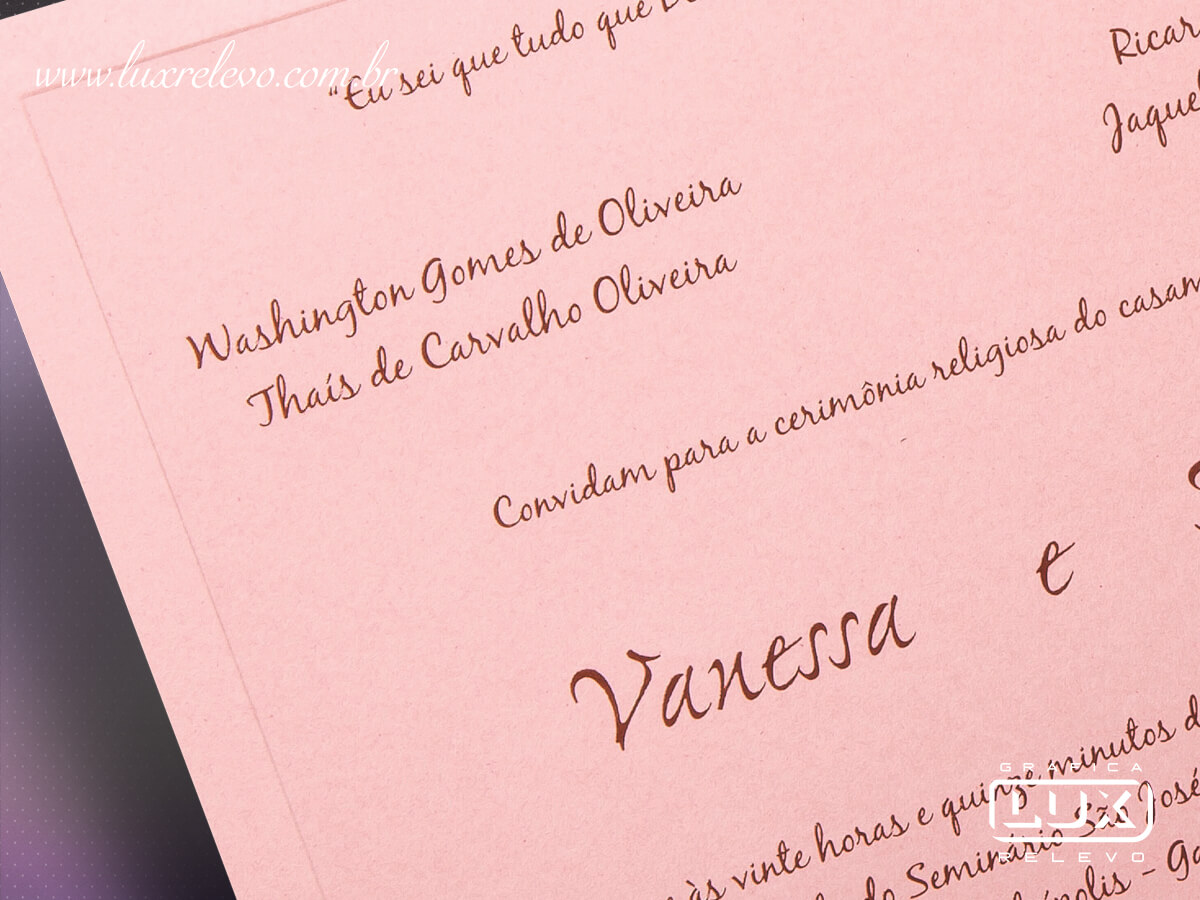 www.luxrelevo.com.br
"Eu sei que tudo que
Washington Gomes de Oliveira
Thaís de Carvalho Oliveira
Convidam para a cerimônia religiosa do
Vanessa e
às vinte horas e quinze minutos
do Seminário São José
GRÁFICA
LUX
RELEVO